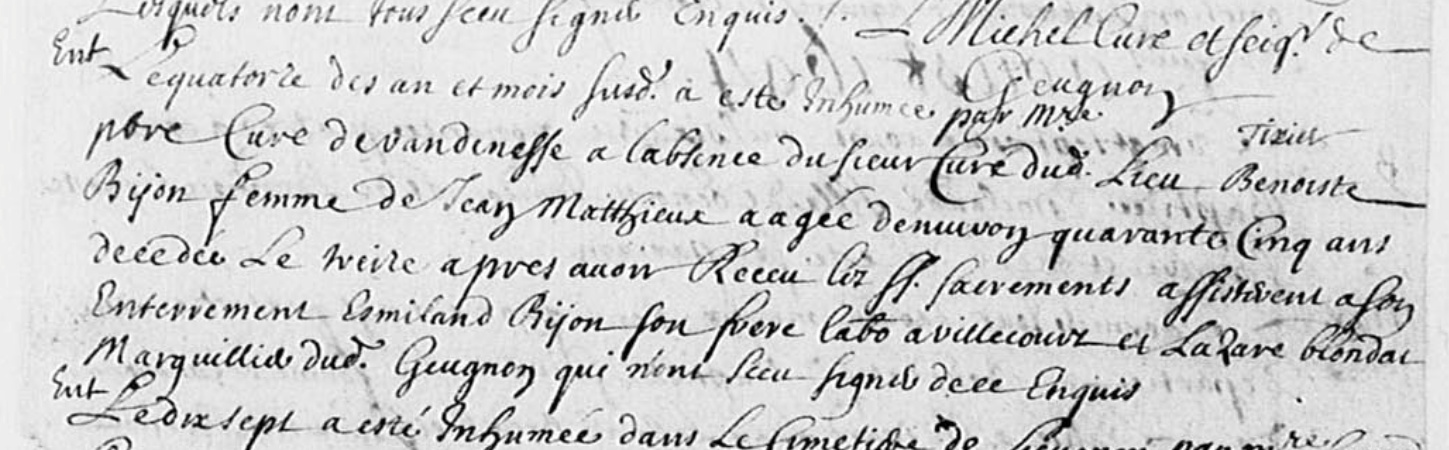 Lesquels nont tous sceu signer Enquis. Michel Curé et seigr. de
Geugnon
Ent Le quatorze des an et mois susd. a esté Inhumee par Mre Tixier
pbre Curé de vandenesse a labsence du sieur Curé dud. Lieu Benoiste
Bijon femme de Jean Matthieux aagée denuiron quarante Cinq ans
decedée Le treize apres auoir Receu les SS. sacrements assisterent a son
Enterrement Esmiland Bijon son frere labo a villecourt et Lazare blondat
Marguillier dud. Geugnon qui n'ont sceu signer de ce Enquis
Ent Le dix sept a esté Inhumée dans Le Cimetiere de